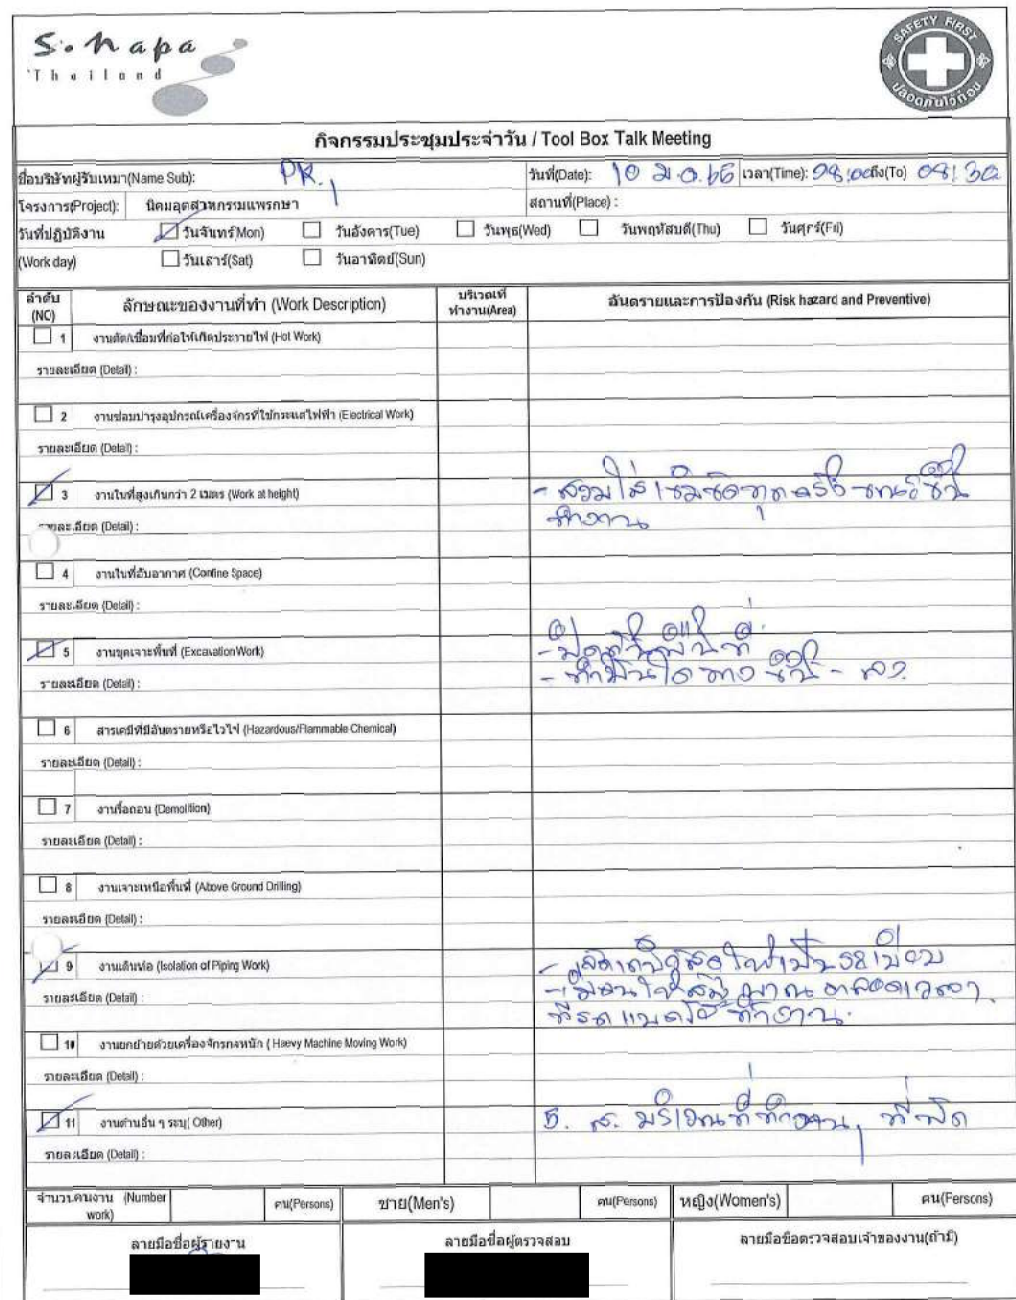 S.napa
Thailand
SAFETY FIRST
ปลอดภัยไว้ก่อน
กิจกรรมประชุมประจำวัน / Tool Box Talk Meeting
ชื่อบริษัทผู้รับเหมา(Name Sub): PR. วันที่(Date): 10 เวลา(Time): 08:00 ถึง(To) 08:30
โครงการ(Project): นิคมอุตสาหกรรมแพรกษา สถานที่(Place) :
วันที่ปฏิบัติงาน วันจันทร์(Mon) วันอังคาร(Tue) วันพุธ(Wed) วันพฤหัสบดี(Thu) วันศุกร์(Fri)
(Work day) วันเสาร์(Sat) วันอาทิตย์(Sun)
ลำดับ (NC) ลักษณะของงานที่ทำ (Work Description) บริเวณที่ทำงาน(Area) อันตรายและการป้องกัน (Risk hazard and Preventive)
1 งานตัดเชื่อมที่ก่อให้เกิดประกายไฟ (Hot Work)
รายละเอียด (Detail) :
2 งานซ่อมบำรุงอุปกรณ์เครื่องจักรที่ใช้กระแสไฟฟ้า (Electrical Work)
รายละเอียด (Detail) :
3 งานในที่สูงเกินกว่า 2 เมตร (Work at height) - สวมใส่เข็มขัดทุกครั้ง ขึ้น
รายละเอียด (Detail) : ทำงาน
4 งานในที่อับอากาศ (Confine Space)
รายละเอียด (Detail) :
5 งานขุดเจาะพื้นที่ (ExcavationWork)
- ทำบันไดทางขึ้น - ลง
รายละเอียด (Detail) :
6 สารเคมีที่มีอันตรายหรือไวไฟ (Hazardous/Flammable Chemical)
รายละเอียด (Detail) :
7 งานรื้อถอน (Demolition)
รายละเอียด (Detail) :
8 งานเจาะเหนือพื้นที่ (Above Ground Drilling)
รายละเอียด (Detail) :
9 งานเดินท่อ (Isolation of Piping Work) ให้เป็นระเบียบ
รายละเอียด (Detail) : ให้สัญญาณตลอดเวลา
ที่รถแบคโฮทำงาน
10 งานยกย้ายด้วยเครื่องจักรกลหนัก ( Haevy Machine Moving Work)
รายละเอียด (Detail) :
11 งานด้านอื่น ๆ ระบุ( Other) 5. ส. บริเวณที่ทำงาน, ที่พัก
รายละเอียด (Detail) :
จำนวนคนงาน (Number work) คน(Persons) ชาย(Men's) คน(Persons) หญิง(Women's) คน(Persons)
ลายมือชื่อผู้รายงาน ลายมือชื่อผู้ตรวจสอบ ลายมือชื่อตรวจสอบเจ้าของงาน(ถ้ามี)